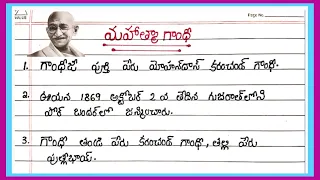 Page No.
మహాత్మా గాంధీ
1. గాంధీజీ పూర్తి పేరు మోహన్‌దాస్ కరంచంద్ గాంధీ.
2. ఈయన 1869 అక్టోబర్ 2 వ తేదీన గుజరాత్‌లోని
పోర్ బందర్‌లో జన్మించారు.
3. గాంధీ తండ్రి పేరు కరంచంద్ గాంధీ, తల్లి పేరు
పుత్లీబాయ్.